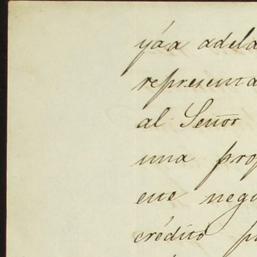 yáa adela
representa
al Señor
una prop
ene nego
crédito p